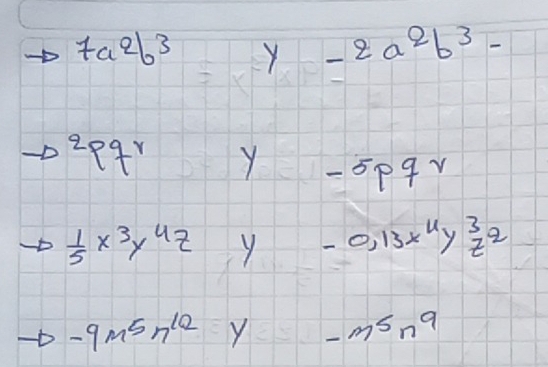 → 7a²b³ y -2a²b³-
→ 2pqr y -5pqr
→ 1/5 x³y⁴z y -0,13x⁴y³z²
→ -9m⁵n¹² y -m⁵n⁹